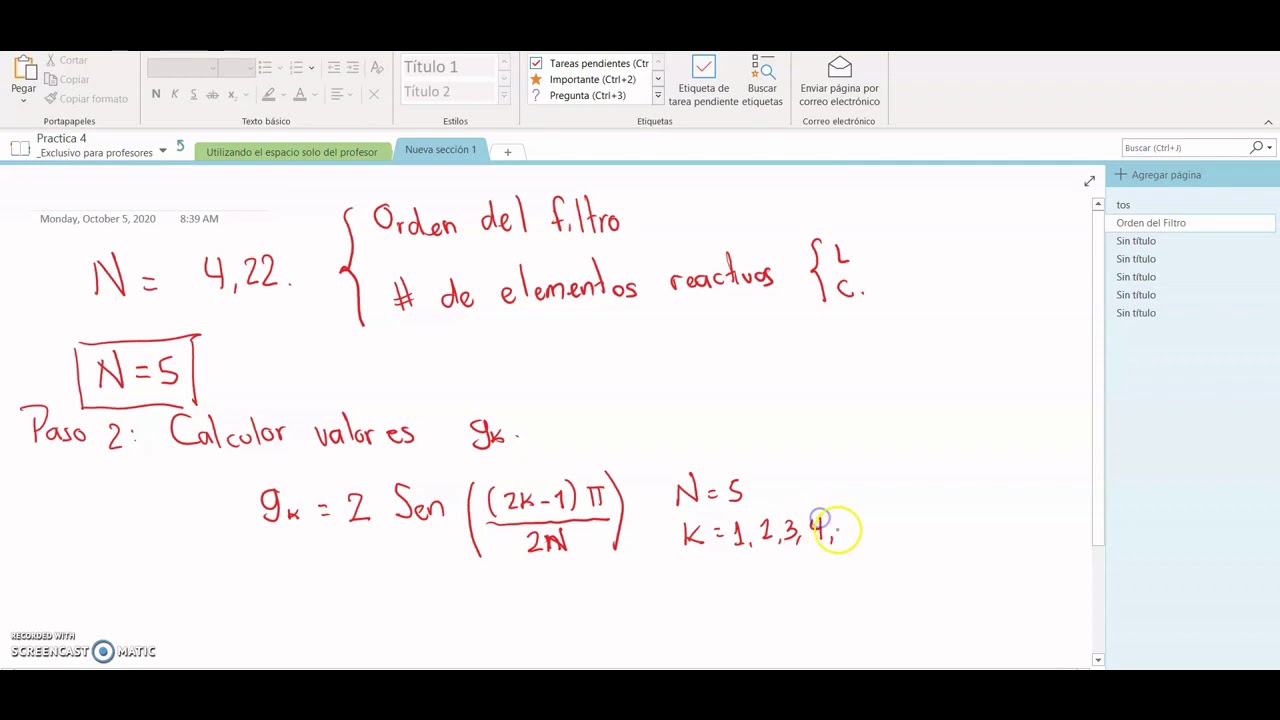 Cortar
Copiar
Copiar formato
Pegar
Portapapeles
N K S ab x₂ A
Texto básico
Título 1
Título 2
Estilos
Tareas pendientes (Ctr
Importante (Ctrl+2)
? Pregunta (Ctrl+3)
Etiqueta de
tarea pendiente
Buscar
etiquetas
Etiquetas
Enviar página por
correo electrónico
Correo electrónico
Practica 4
_Exclusivo para profesores
Utilizando el espacio solo del profesor
Nueva sección 1
+
Buscar (Ctrl+J)
Agregar página
tos
Orden del Filtro
Sin título
Sin título
Sin título
Sin título
Sin título
Monday, October 5, 2020 8:39 AM
N = 4,22. { Orden del filtro
# de elementos reactivos { L
C.
N = 5
Paso 2: Calcular valores gk.
gk = 2 Sen ( (2k-1) π / 2N )
N = 5
K = 1, 2, 3, 4,
RECORDED WITH
SCREENCAST MATIC